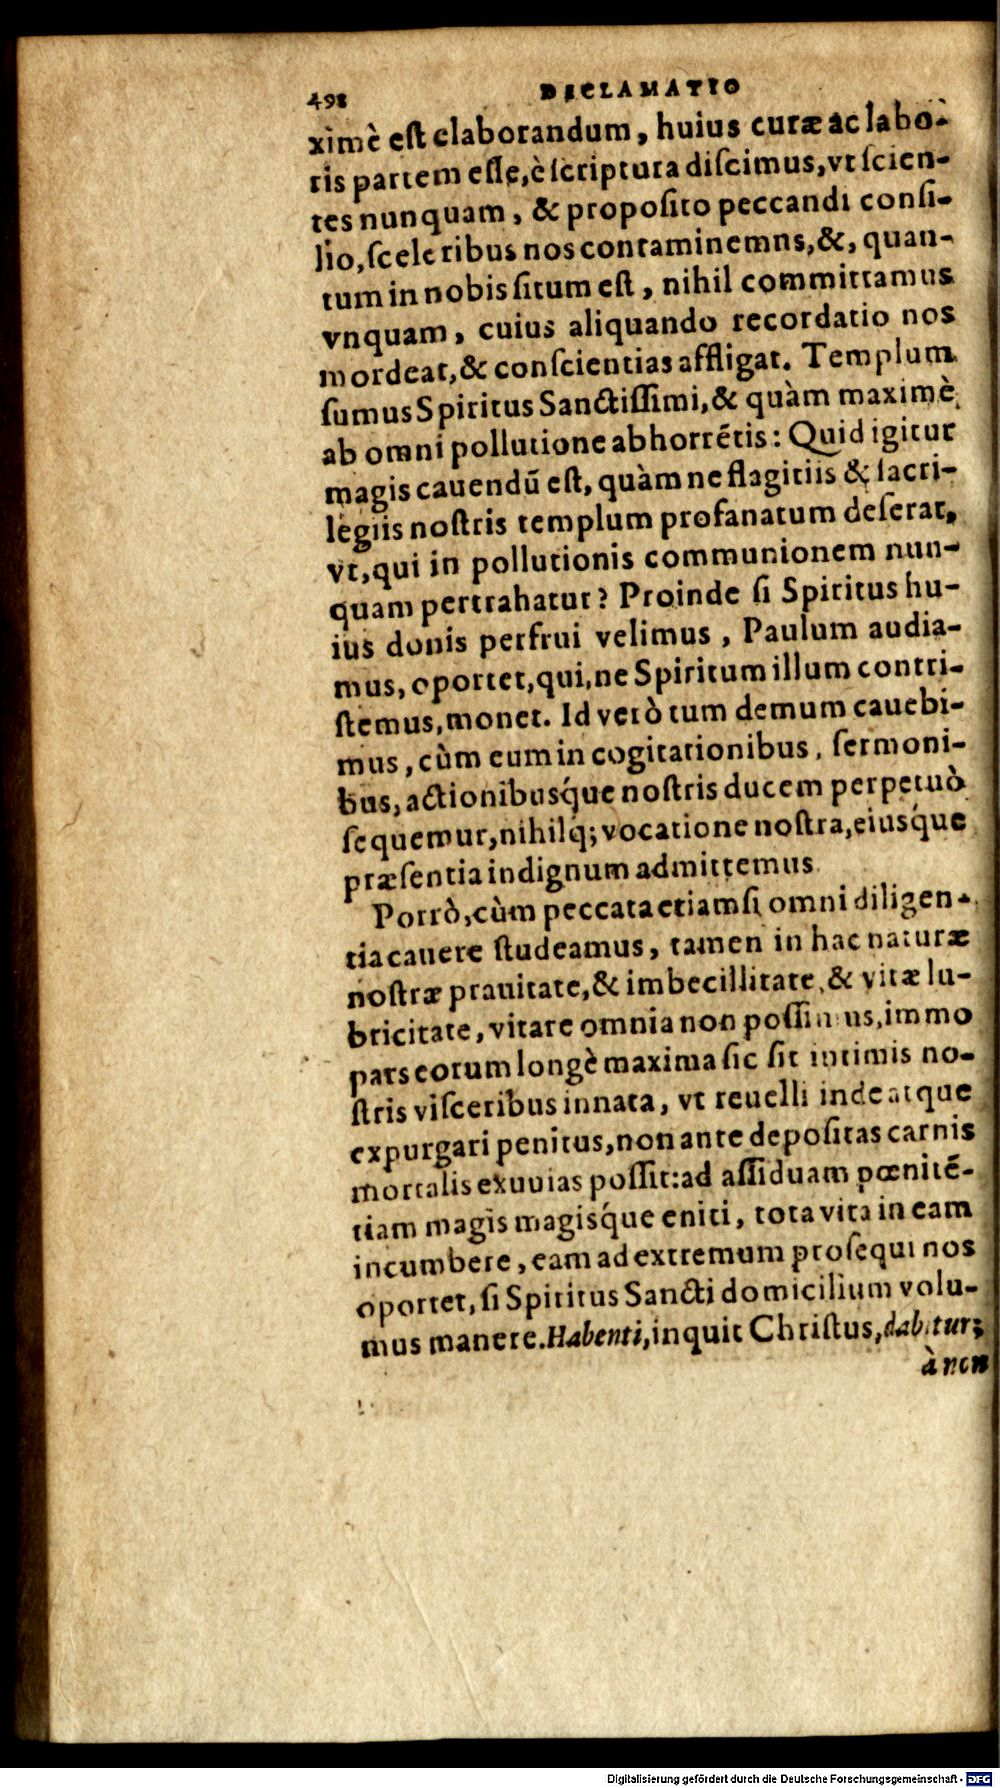 498 DECLAMATIO
ximè eſt elaborandum, huius curæ ac labo-
ris partem eſſe, è ſcriptura diſcimus, vt ſcien-
tes nunquam, & propoſito peccandi conſi-
lio, ſceleribus nos contaminemns, &, quan-
tum in nobis ſitum eſt, nihil committamus
vnquam, cuius aliquando recordatio nos
mordeat, & conſcientias affligat. Templum
ſumus Spiritus Sanctiſſimi, & quàm maximè
ab omni pollutione abhorrētis: Quid igitur
magis cauendū eſt, quàm ne flagitiis & ſacri-
legiis noſtris templum profanatum deſerat,
vt, qui in pollutionis communionem nun-
quam pertrahatur? Proinde ſi Spiritus hu-
ius donis perfrui velimus, Paulum audia-
mus, oportet, qui, ne Spiritum illum contri-
ſtemus, monet. Id verò tum demum cauebi-
mus, cùm eum in cogitationibus, ſermoni-
bus, actionibusq́ue noſtris ducem perpetuò
ſequemur, nihilq́; vocatione noſtra, eiusq́ue
præſentia indignum admittemus
Porrò, cùm peccata etiamſi omni diligen-
tia cauere ſtudeamus, tamen in hac naturæ
noſtræ prauitate, & imbecillitate, & vitæ lu-
bricitate, vitare omnia non poſſimus, immo
pars eorum longè maxima ſic ſit intimis no-
ſtris viſceribus innata, vt reuelli inde atque
expurgari penitus, non ante depoſitas carnis
mortalis exuuias poſſit: ad aſſiduam pœnitē-
tiam magis magisq́ue eniti, tota vita in eam
incumbere, eam ad extremum proſequi nos
oportet, ſi Spiritus Sancti domicilium volu-
mus manere. Habenti, inquit Chriſtus, dabitur;
à non
Digitalisierung gefördert durch die Deutsche Forschungsgemeinschaft - DFG